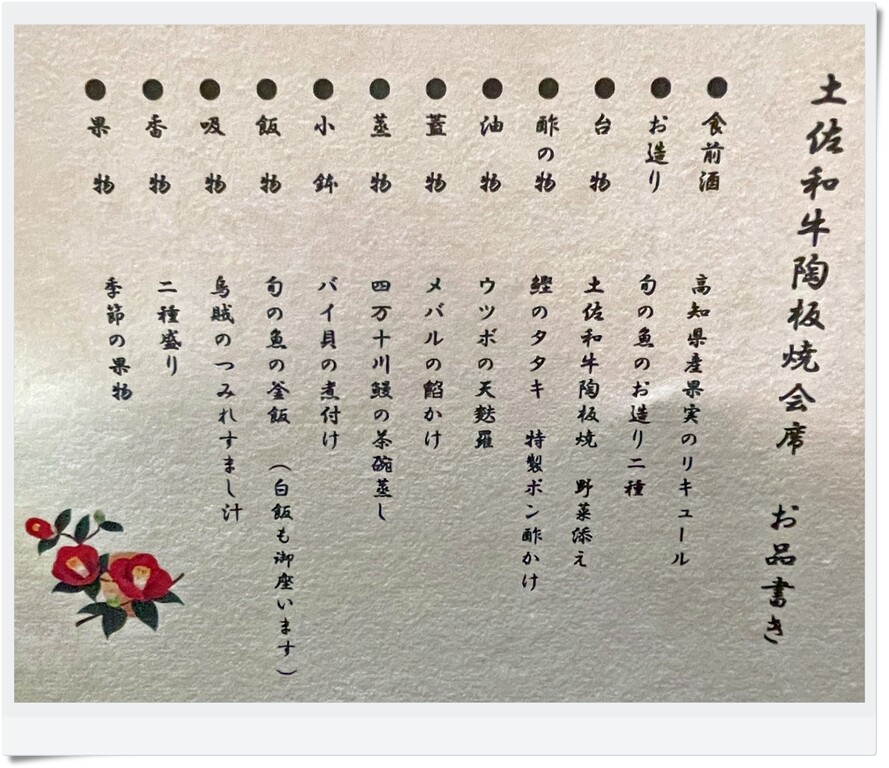 土佐和牛陶板焼会席 お品書き
● 食前酒 高知県産果実のリキュール
● お造り 旬の魚のお造り二種
● 台物 土佐和牛陶板焼 野菜添え
● 酢の物 鰹のタタキ 特製ポン酢かけ
● 油物 ウツボの天麩羅
● 蓋物 メバルの餡かけ
● 蒸物 四万十川鰻の茶碗蒸し
● 小鉢 バイ貝の煮付け
● 飯物 旬の魚の釜飯 (白飯も御座います)
● 吸物 烏賊のつみれすまし汁
● 香物 二種盛り
● 果物 季節の果物